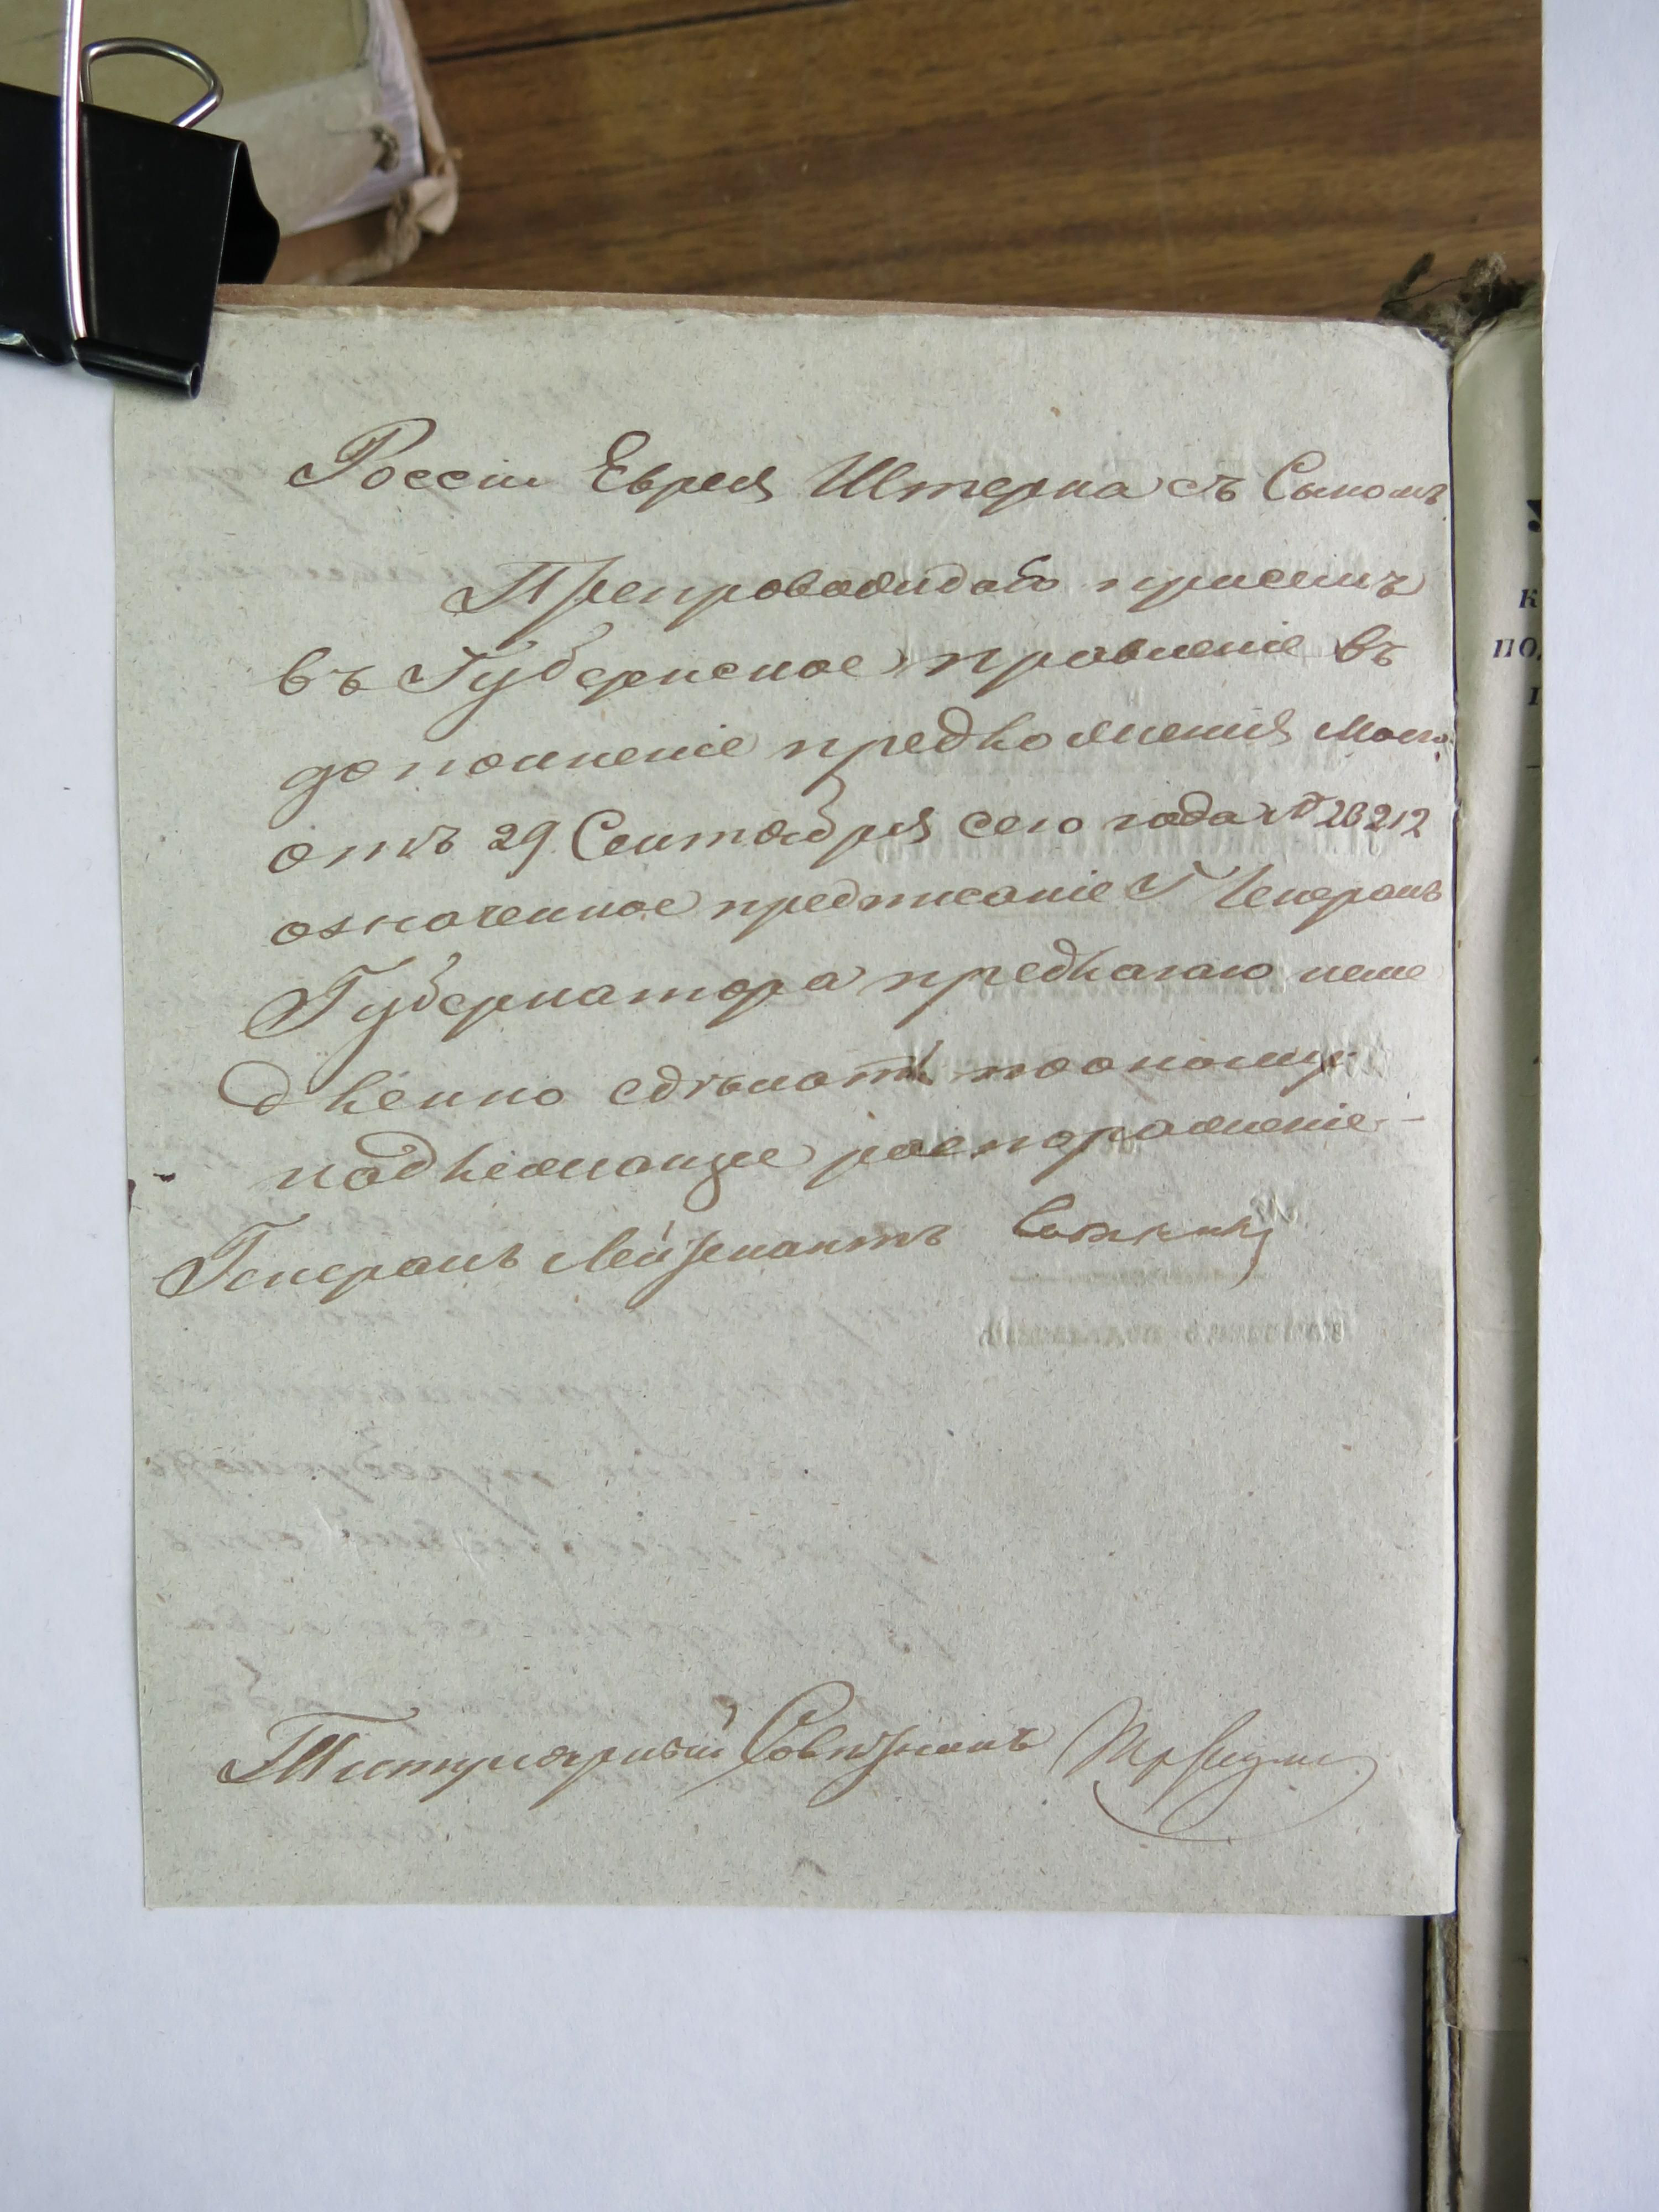 Россіи Еврея Штерна съ Сыномъ
Препровождая при семъ
въ Губернское правленіе въ
дополненіе предложенія моего
отъ 29 Сентября сего года № 20212
означенное предписаніе Г Генералъ
Губернатора предлагаю неме
дленно сдѣлать по оному
надлежащее распоряженіе.
Генералъ Лейтенантъ
Титулярный Совѣтникъ
к
по